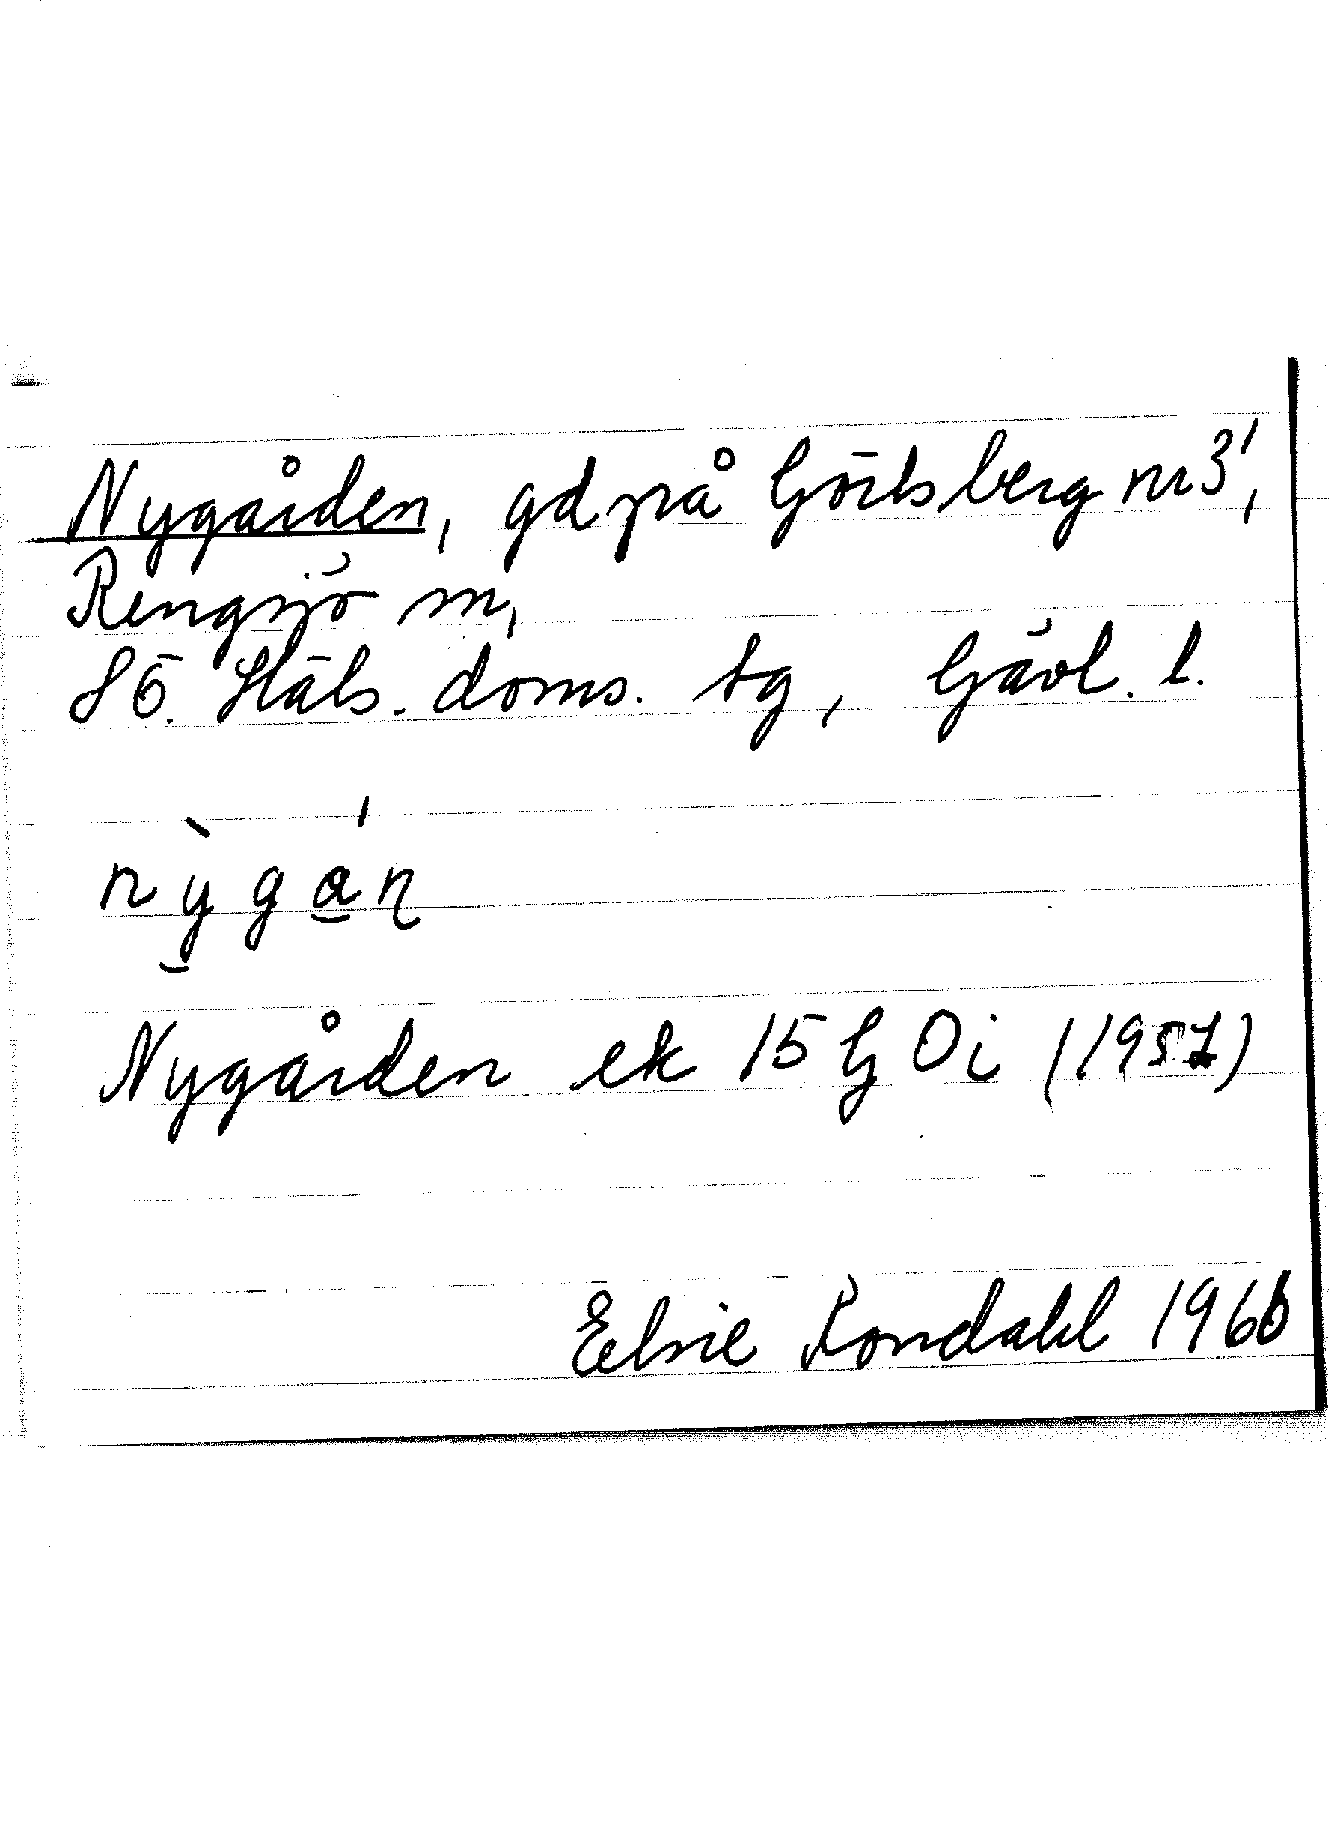 Nygården, gd på Görtsberg nr 3¹,
Rengsjö sn,
SÖ. Häls. doms. tg, Gävl. l.
nỳgá̱ɳ
Nygården ek 15 G Oi (1957)
Elsie Rondahl 1966